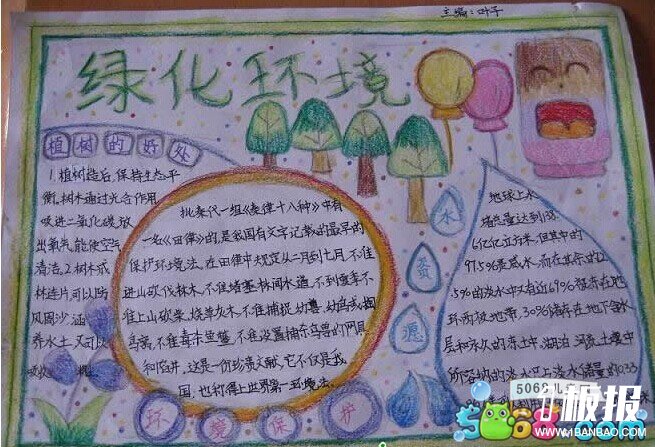 主编：叶子
绿化环境
植树的好处
1. 植树造后，保持生态平
衡，树木通过光合作用
吸进二氧化碳，放
出氧气，能使空气
清洁。2. 树木成
林连片，可以防
风固沙，涵
养水土，又可以
吸收
机
在秦代一组《秦律十八种》中有
一名《田律》的，是我国有文字记载的最早的
保护环境法。在田律中规定从二月到七月，不准
进山砍伐林木，不准堵塞林间水道，不到夏季不
准上山砍柴、烧草灰木，不准捕捉幼兽、幼鸟或掏
鸟窝，不准毒杀鱼鳖，不准设置捕杀鸟兽的网具
和陷井。这是一份珍贵文献，它不仅是我
国，也称得上世界第一环境法。
水
资
源
地球上水
储总量达到138
6亿亿立方米，但其中的
97.5%是咸水。而在其余的2
.5%的淡水中又有近69%储存在地
球两极地带，30%储存在地下含水
层和永久的冻土中，湖泊、河流、土壤中
所容纳的淡水只占淡水储量的0.33
环境保护
5068儿
极报
WWW.1BANBAO.COM